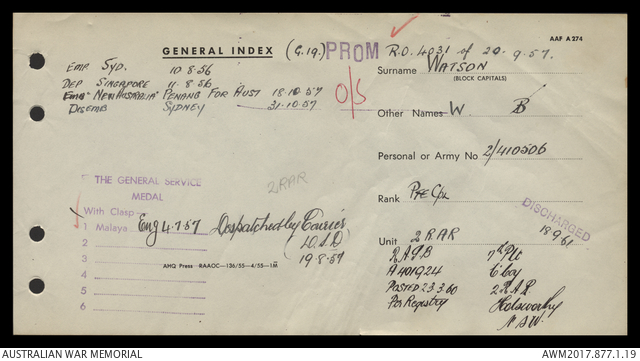 AAF A 274
GENERAL INDEX (G.19.) PROM R.O. 4031 of 20.9.57.
Surname WATSON
(BLOCK CAPITALS)
EMP SYD. 10.8.56
DEP SINGAPORE 11.8.56
EMB "NEW AUSTRALIA" PENANG FOR AUST 18.10.57
DISEMB SYDNEY 31.10.57
O/S
Other Names W. B
Personal or Army No 2/410506
2 RAR
Rank Pte Cpl
DISCHARGED
18 9 61
THE GENERAL SERVICE
MEDAL
With Clasp
1 Malaya Eng 4.7.57 Despatched by Courier
2
3
4
5
6
19.8.57
AHQ Press RAAOC—136/55—4/55—1M
Unit 2 RAR
RAPB 7th Plt
A401924 C Coy
POSTED 23.3.60 2 RAR
For Registry Holsworthy
N.S.W.
AUSTRALIAN WAR MEMORIAL
AWM2017.877.1.19